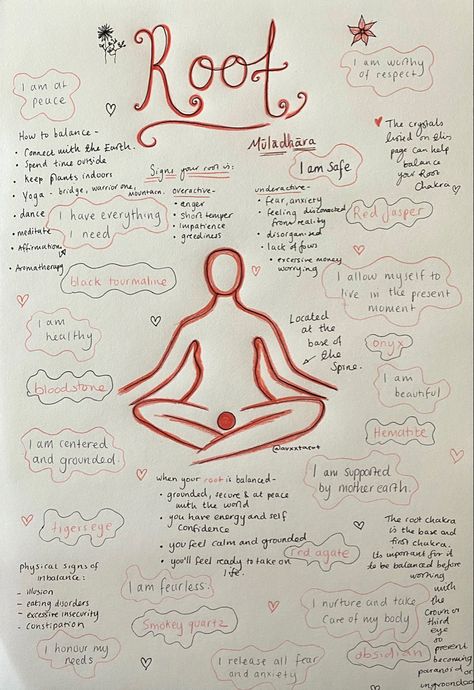 Root
Mūladhāra
I am at
peace
I am worthy
of respect
How to balance -
• Connect with the Earth.
• Spend time outside
• Keep plants indoors
• Yoga - bridge, warrior one, mountain.
• dance
• meditate
• Affirmations
• Aromatherapy
Signs your root is:
overactive -
• anger
• short temper
• Impatience
• greediness
underactive -
• fear, anxiety
• feeling disconnected
from reality
• disorganised
• lack of focus
• excessive money
worrying
I am safe
The crystals
listed on this
page can help
balance
your Root
Chakra
I have everything
I need
Red Jasper
black tourmaline
I allow myself to
live in the present
moment
I am
healthy
Located
at the
base of
the
Spine.
onyx
bloodstone
I am
beautiful
Hematite
I am centered
and grounded.
@avxxtarot
When your root is balanced -
• grounded, secure & at peace
with the world
• you have energy and self
confidence
• you feel calm and grounded
• you'll feel ready to take on
life.
I am supported
by mother earth.
tigers eye
red agate
The root chakra
is the base and
first chakra.
Its important for it
to be balanced before
working
with
the
Crown or
third
eye
to
prevent
becoming
paranoid or
ungrounded
physical signs of
imbalance:
- illusion
- eating disorders
- excessive insecurity
- Constipation
I am fearless.
Smokey quartz
I nurture and take
care of my body
I honour my
needs
I release all fear
and anxiety
obsidian